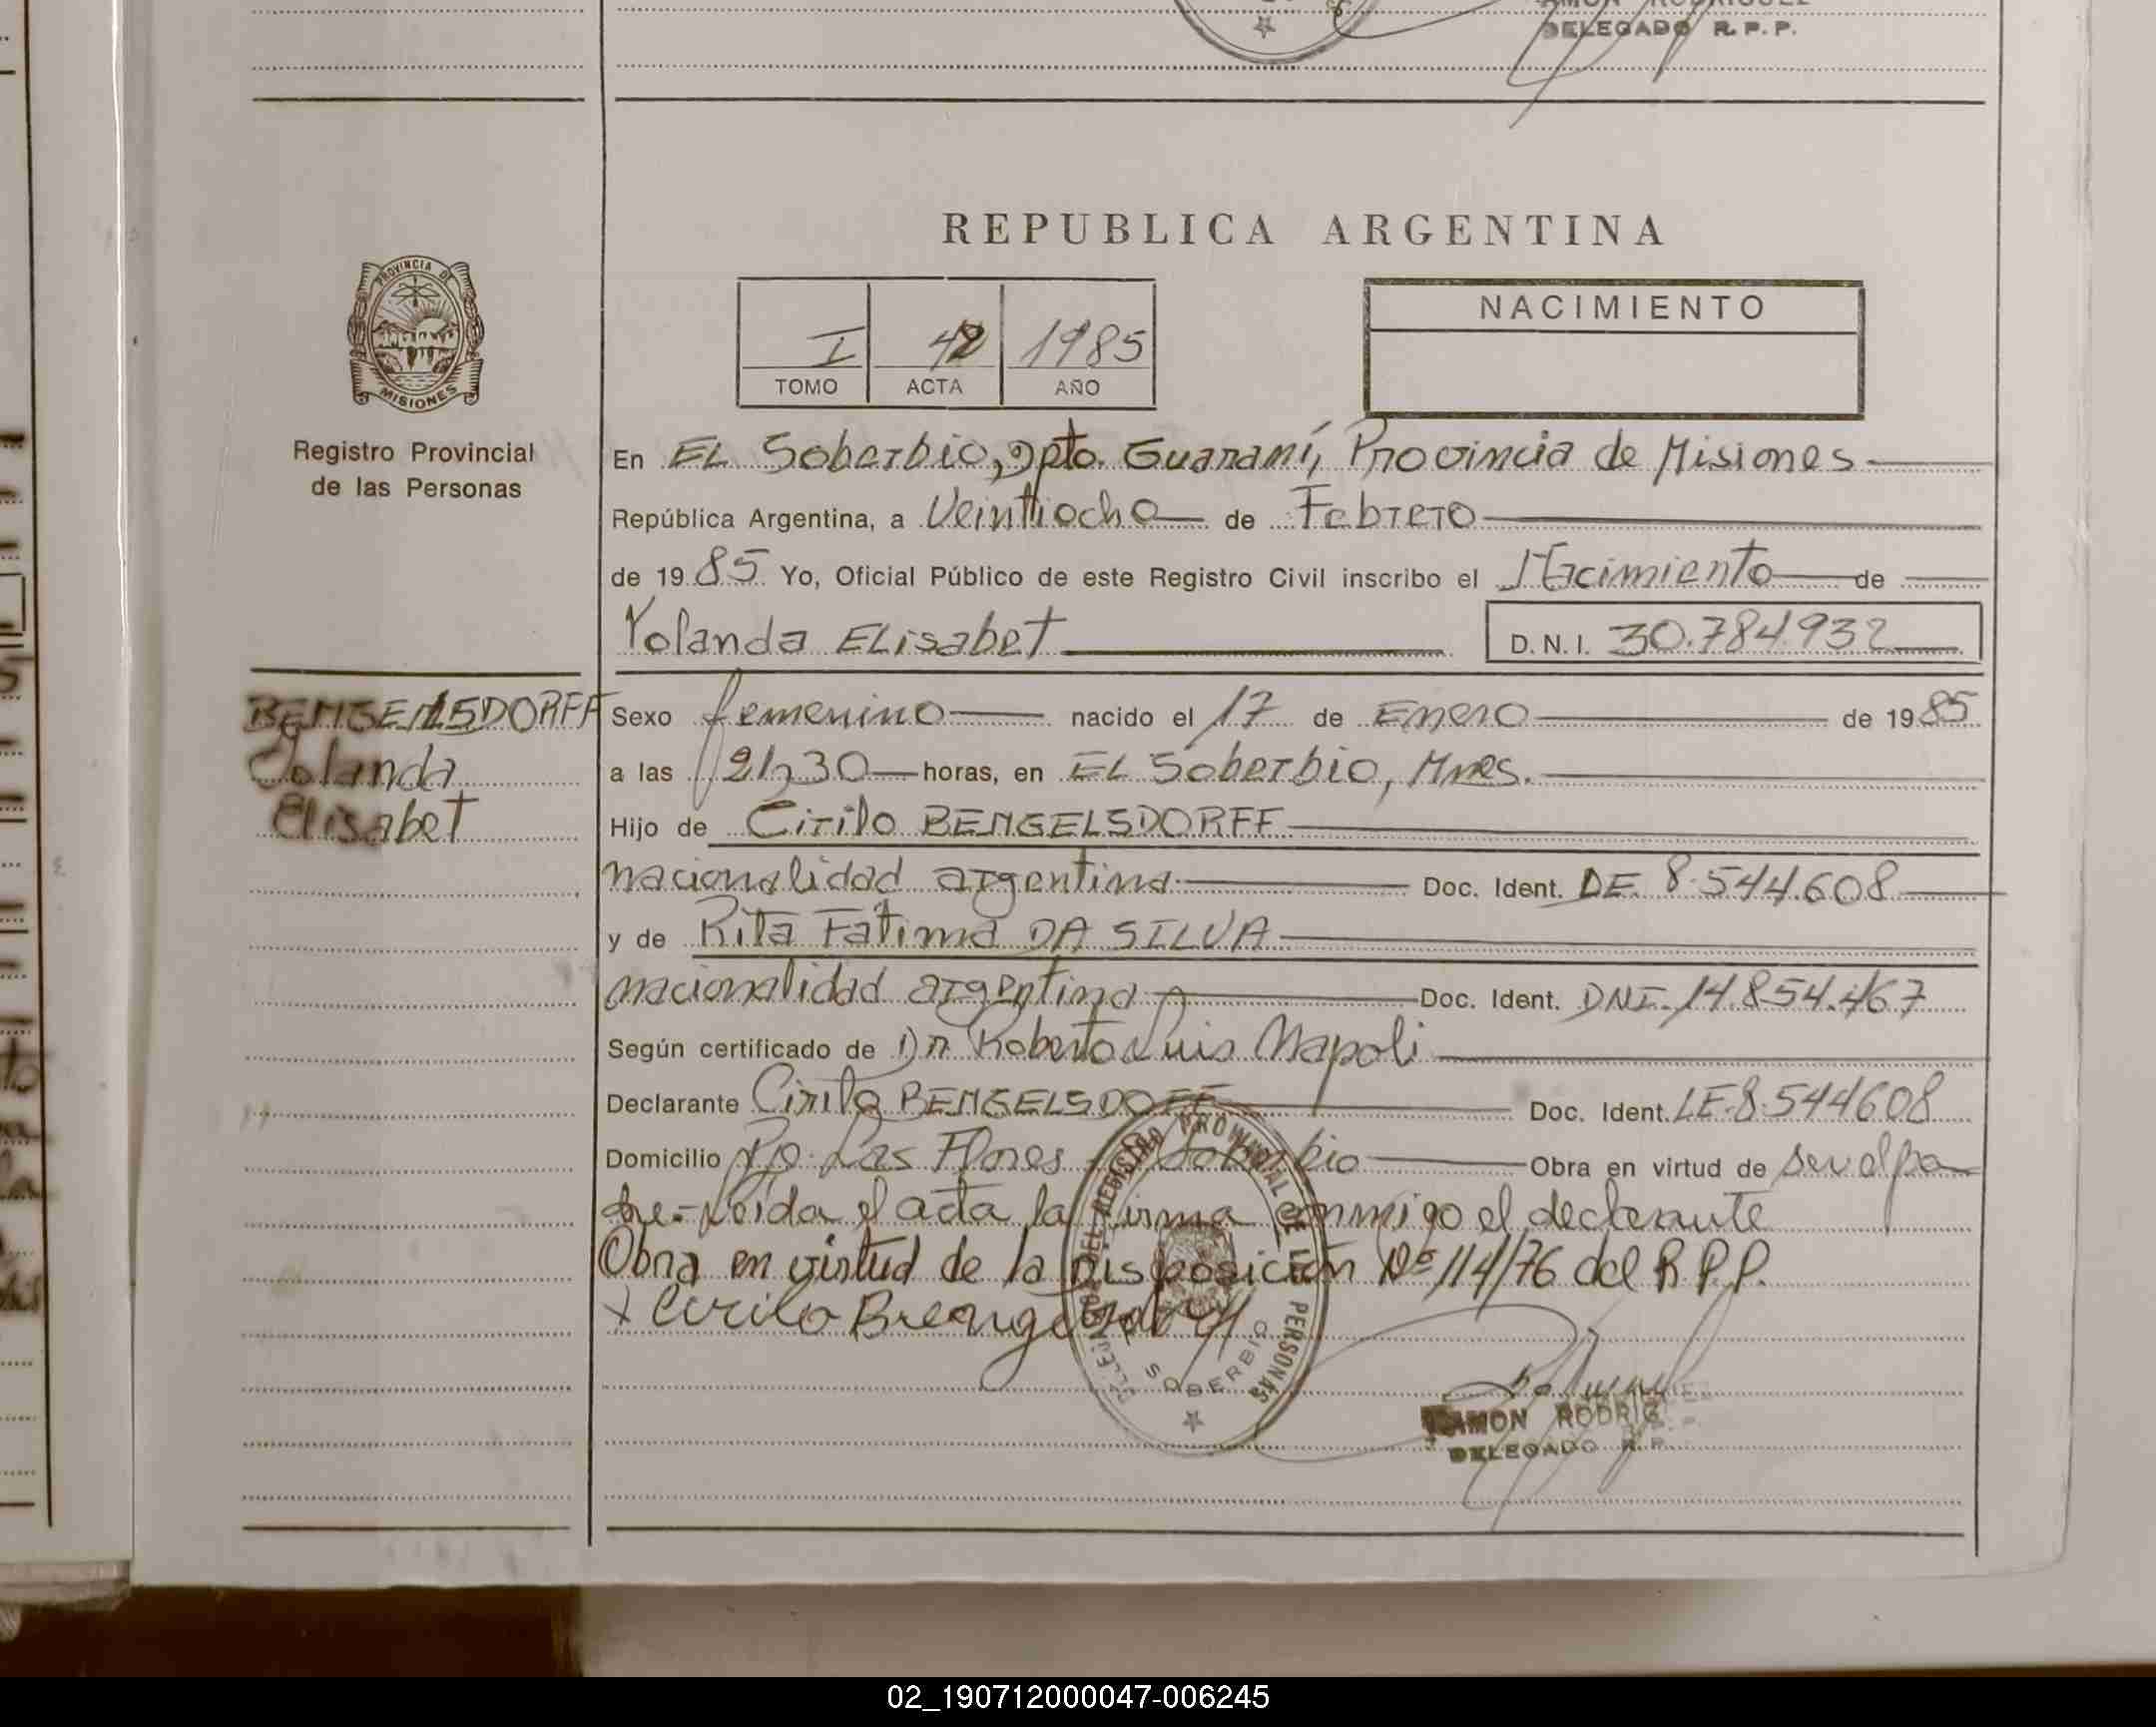 DELEGADO R.P.P.
REPUBLICA ARGENTINA
PROVINCIA DE
MISIONES
Registro Provincial
de las Personas
I 42 1985
TOMO ACTA AÑO
NACIMIENTO
En EL Soberbio, Dpto. Guaraní, Provincia de Misiones
República Argentina, a Veintiocho de Febrero
de 1985 Yo, Oficial Público de este Registro Civil inscribo el Nacimiento de
Yolanda ELisabet D.N.I. 30.784.932
BENGELSDORFF
Yolanda
Elisabet
Sexo femenino nacido el 17 de Enero de 1985
a las 21,30 horas, en EL Soberbio, Mnes.
Hijo de Cirilo BENGELSDORFF
nacionalidad argentina Doc. Ident. DE 8.544.608
y de Rita Fatima DA SILVA
nacionalidad argentina Doc. Ident. DNI. 14.854.467
Según certificado de Dr Roberto Luis Napoli
Declarante Cirilo BENGELSDOFF Doc. Ident. LE-8.544608
Domicilio Pje. Las Flores Soberbio Obra en virtud de ser el pa
dre.- Leida el acta la firma conmigo el declarante
Obra en virtud de la Disposición Nº 114/76 del R.P.P.
x Cirilo
DELEGACIÓN DEL REGISTRO PROVINCIAL DE LAS PERSONAS
SOBERBIO
RAMON RODRIG
DELEGADO R.P.
02_190712000047-006245